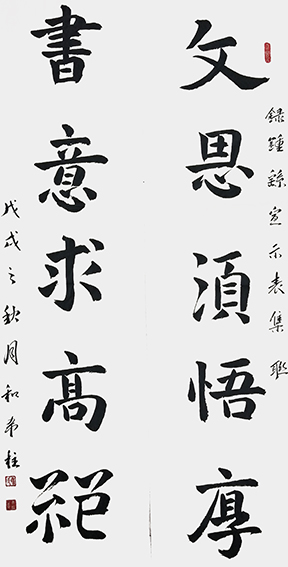 錄鍾繇宣示表集聯
文思湏悟厚
書意求髙
戊戌之秋月和